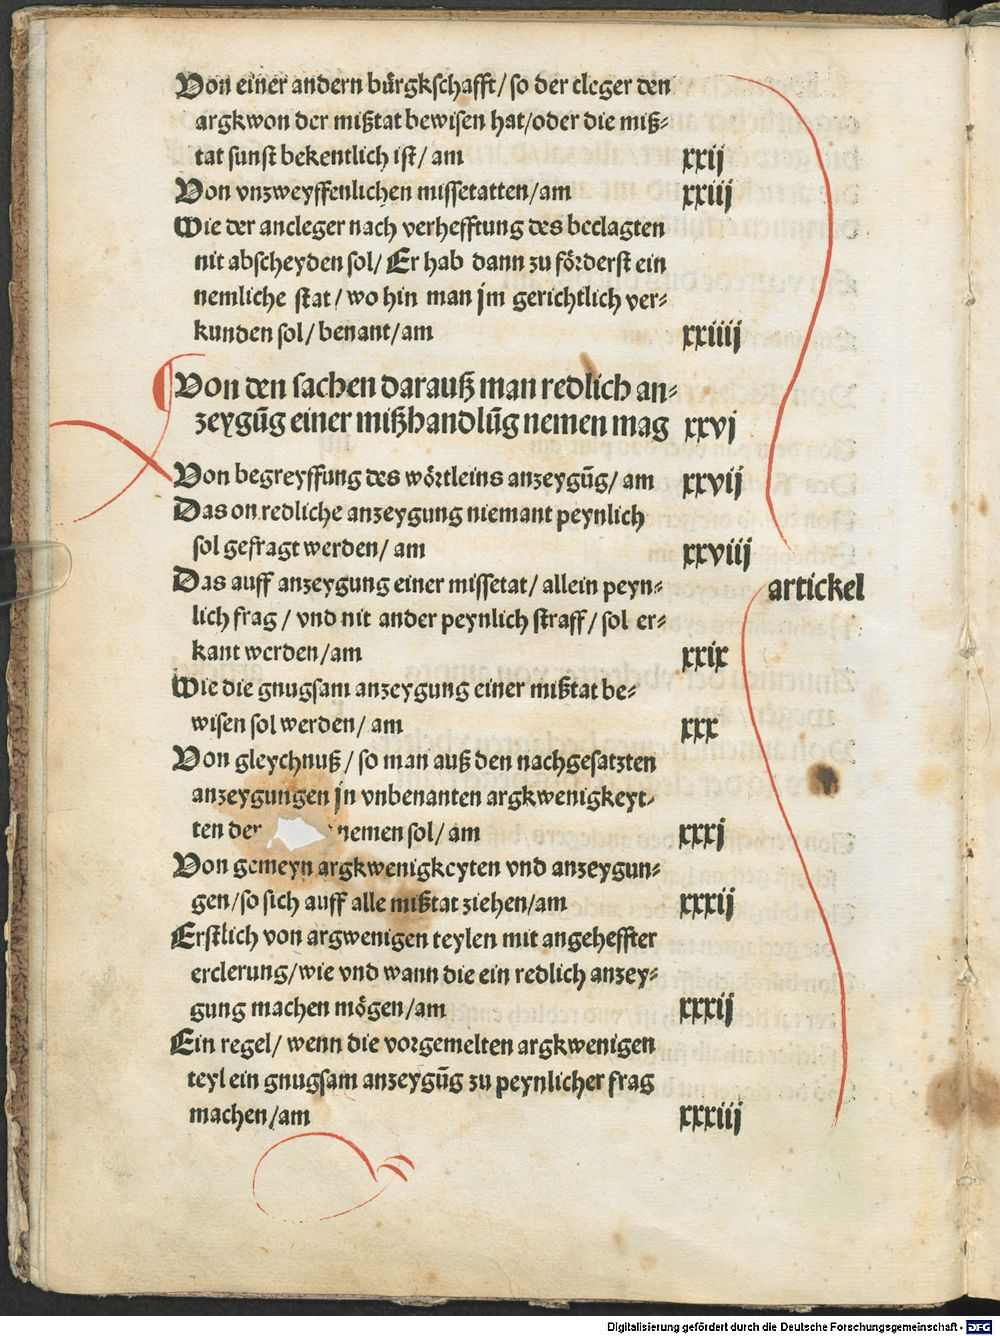 Von einer andern bürgkschafft/ so der cleger den
argkwon der mißtat bewisen hat/oder die miß⸗
tat sunst bekentlich ist/ am xxij
Von vnzweyffenlichen missetatten/am xxiij
Wie der ancleger nach verhefftung des beclagten
nit abscheyden sol/ Er hab dann zu förderst ein
nemliche stat/ wo hin man jm gerichtlich ver⸗
kunden sol/ benant/am xxiiij
Von den sachen darauß man redlich an⸗
zeygūg einer mißhandlūg nemen mag xxvj
Von begreyffung des wörtleins anzeygūg/ am xxvij
Das on redliche anzeygung niemant peynlich
sol gefragt werden/ am xxviij
Das auff anzeygung einer missetat/ allein peyn⸗ artickel
lich frag/ vnd nit ander peynlich straff/ sol er⸗
kant werden/am xxix
Wie die gnugsam anzeygung einer mißtat be⸗
wisen sol werden/ am xxx
Von gleychnuß/ so man auß den nachgesatzten
anzeygungen jn vnbenanten argkwenigkeyt⸗
ten der nemen sol/ am xxxj
Von gemeyn argkwenigkeyten vnd anzeygun⸗
gen/so sich auff alle mißtat ziehen/am xxxij
Erstlich von argwenigen teylen mit angeheffter
erclerung/wie vnd wann die ein redlich anzey⸗
gung machen mögen/am xxxij
Ein regel/ wenn die vorgemelten argkwenigen
teyl ein gnugsam anzeygūg zu peynlicher frag
machen/am xxxiij
Digitalisierung gefördert durch die Deutsche Forschungsgemeinschaft - DFG